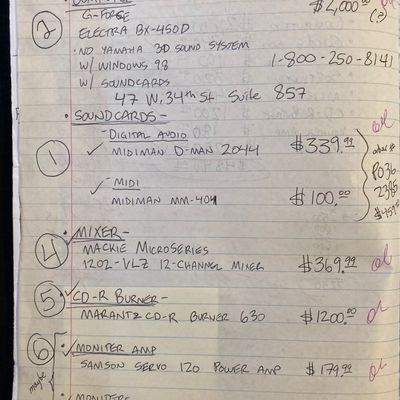 COMPUTER
$2,000.00
(?)
②
G-FORCE
ELECTRA BX-450D
• NO YAMAHA 3D SOUND SYSTEM
W/ WINDOWS 98
1-800-250-8141
W/ SOUNDCARDS
47 W. 34th St Suite 857
• SOUNDCARDS -
ok
①
- DIGITAL AUDIO
✓ MIDIMAN D-MAN 2044 $339.99
✓ - MIDI
MIDIMAN MM-401 $100.00
PO36
2385
④
• MIXER -
MACKIE MICROSERIES
1202-VLZ 12-CHANNEL MIXER $369.99 ok
⑤
• ✓ CD-R BURNER -
MARANTZ CD-R BURNER 630 $1200.00 ok
⑥
maybe
• ✓ MONITER AMP
SAMSON SERVO 120 POWER AMP $179.99 ok
• MONITERS